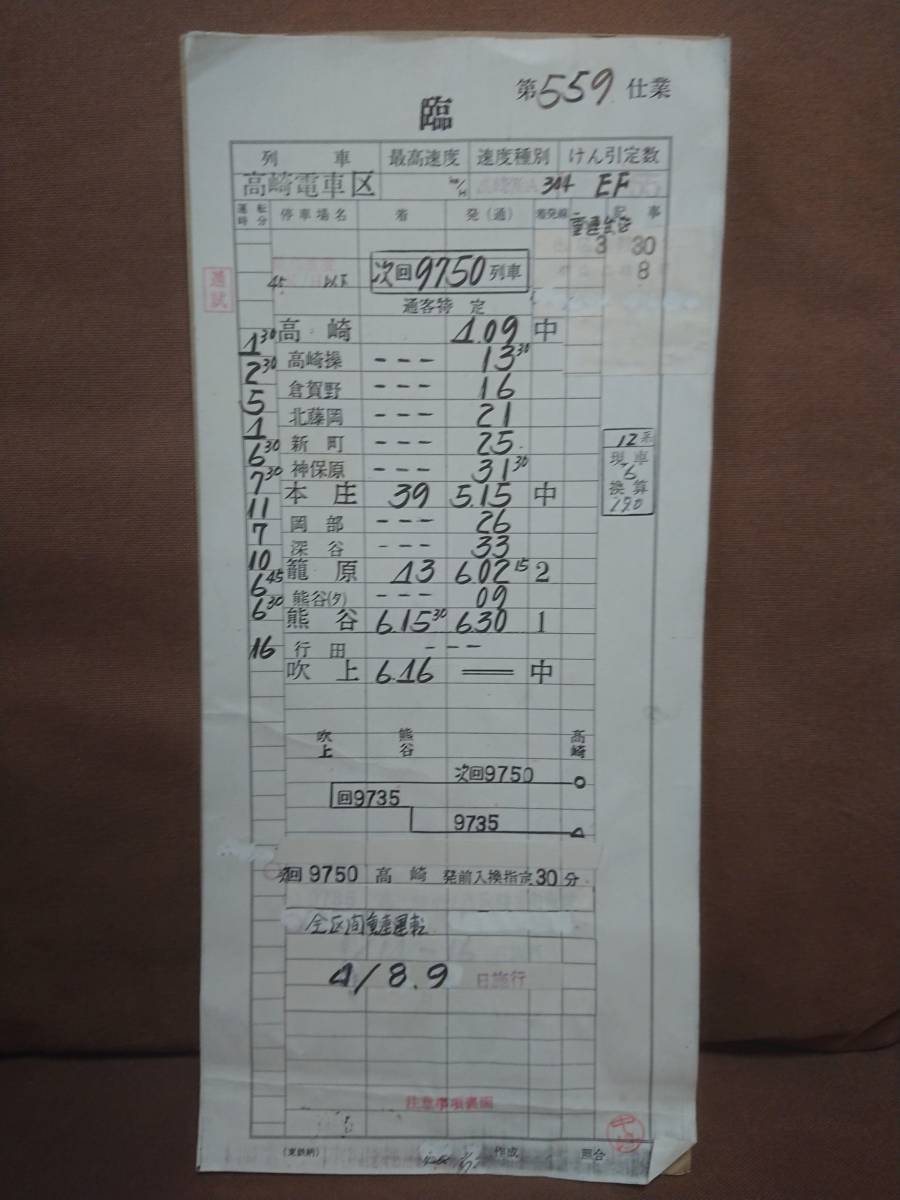 第559仕業
臨
列車 最高速度 速度種別 けん引定数
高崎電車区 km/H 344 EF
運転時分 停車場名 着 発(通) 着発線 記事
3 30
8
45
次回9750列車
通試
通客特定
高崎 4.09 中
1 30
高崎操 --- 13 30
2 30
倉賀野 --- 16
5
北藤岡 --- 21
4
新町 --- 25
6 30
神保原 --- 31 30
7 30
本庄 39 5.15 中
11
岡部 --- 26
7
深谷 --- 33
10
籠原 43 6.02 15 2
6 45
熊谷(タ) --- 09
6 30
熊谷 6.15 30 6.30 1
16
行田 ---
吹上 6.46 == 中
12系
現車
6
換算
19.0
吹上 熊谷 高崎
次回9750
回9735
9735
次回9750 高崎 発前入換指定30分
全区間重連運転
4/8.9 日施行
注意事項裏面
(東鉄納) 作成 照合